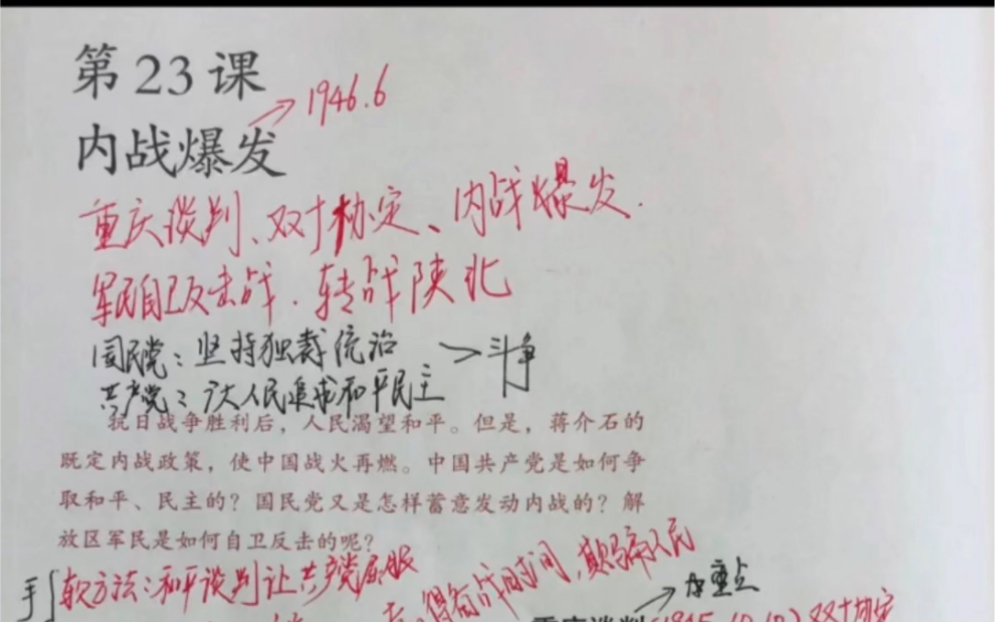 第23课
→1946.6
内战爆发
重庆谈判、双十协定、内战爆发.
军民自卫反击战.转战陕北
国民党：坚持独裁统治 →斗争
共产党：广大人民追求和平民主
抗日战争胜利后，人民渴望和平。但是，蒋介石的
既定内战政策，使中国战火再燃。中国共产党是如何争
取和平、民主的？国民党又是怎样蓄意发动内战的？解
放区军民是如何自卫反击的呢？
手 软方法：和平谈判让共产党屈服
得备战时间，欺骗人民
→重点
重庆谈判(1945.10.10)双十协定